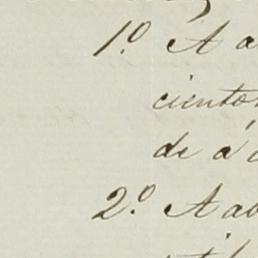 1.º A a
cientos
de á
2.º A ab